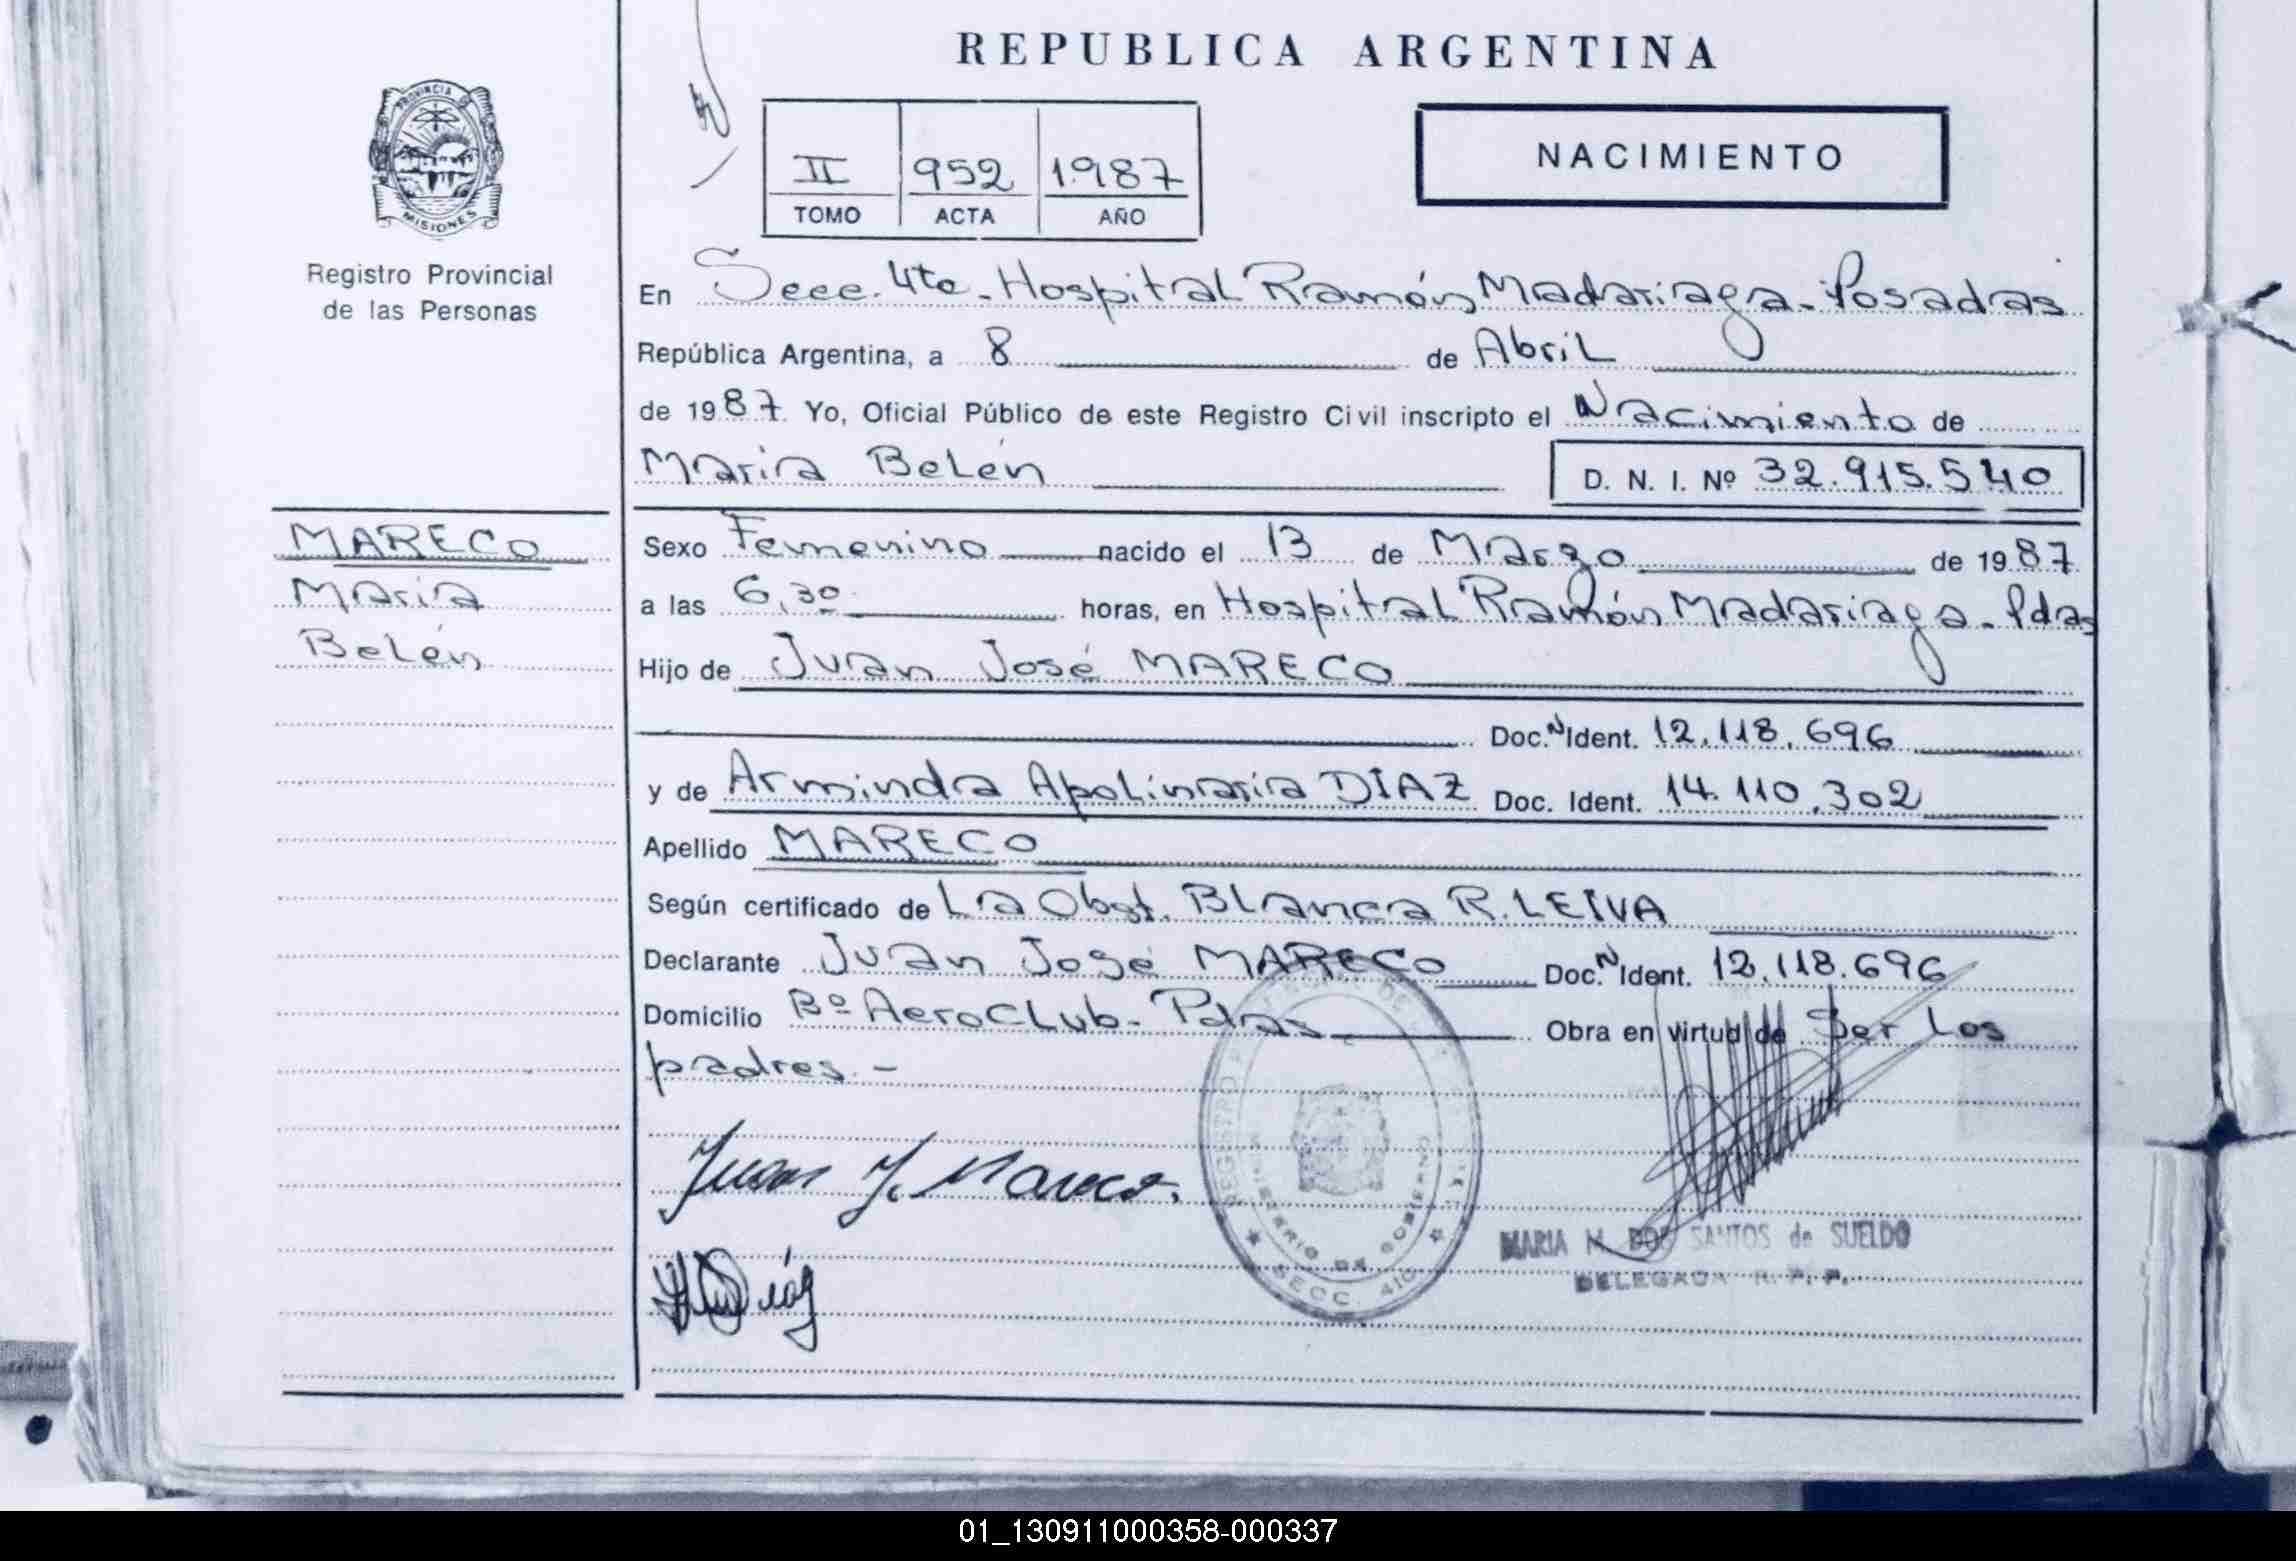 REPUBLICA ARGENTINA
PROVINCIA DE
MISIONES
Registro Provincial
de las Personas
II 952 1987
TOMO ACTA AÑO
NACIMIENTO
En Secc. 4ta - Hospital Ramón Madariaga - Posadas
República Argentina, a 8 de Abril
de 1987. Yo, Oficial Público de este Registro Civil inscripto el Nacimiento de
María Belén D. N. I. Nº 32.915.540
MARECO
María
Belén
Sexo Femenino nacido el 13 de Marzo de 1987
a las 6,30 horas, en Hospital Ramón Madariaga - Pdas
Hijo de Juan José MARECO
Doc. N Ident. 12.118.696
y de Arminda Apolinaria DIAZ Doc. Ident. 14.110.302
Apellido MARECO
Según certificado de La Obst. Blanca R. LEIVA
Declarante Juan José MARECO Doc. N Ident. 12.118.696
Domicilio Bº AeroClub - Pdas Obra en virtud de Ser Los
padres.-
Juan J. Mareco.
Diáz
REGISTRO
MINISTERIO DE GOBIERNO
SECC. 4ta
MARIA M. DOS SANTOS de SUELDO
DELEGADA R. P. P.
01_130911000358-000337